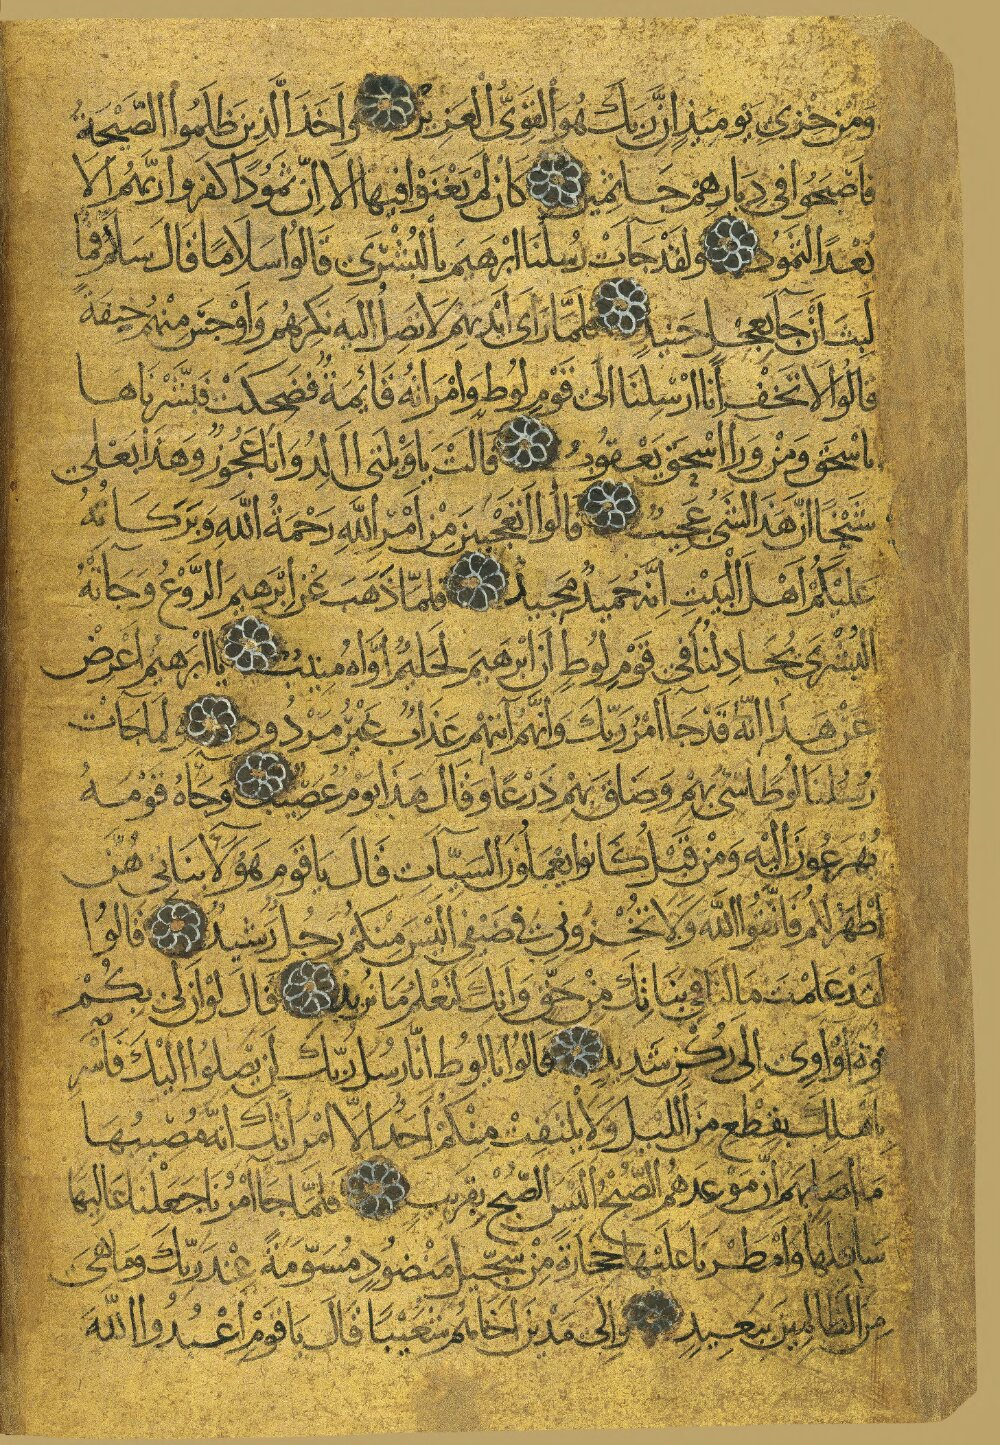 وَمِنْ خِزْيِ يَوْمِئِذٍ إِنَّ رَبَّكَ هُوَ الْقَوِيُّ الْعَزِيزُ وَأَخَذَ الَّذِينَ ظَلَمُوا الصَّيْحَةُ
فَأَصْبَحُوا فِي دِيَارِهِمْ جَاثِمِينَ كَأَنْ لَمْ يَغْنَوْا فِيهَا أَلَا إِنَّ ثَمُودًا كَفَرُوا رَبَّهُمْ أَلَا
بُعْدًا لِثَمُودَ وَلَقَدْ جَاءَتْ رُسُلُنَا إِبْرَهِيمَ بِالْبُشْرَى قَالُوا سَلَامًا قَالَ سَلَامٌ فَمَا
لَبِثَ أَنْ جَا بِعِجْلٍ حَنِيذٍ فَلَمَّا رَأَى أَيْدِيَهُمْ لَا تَصِلُ إِلَيْهِ نَكِرَهُمْ وَأَوْجَسَ مِنْهُمْ خِيفَةً
قَالُوا لَا تَخَفْ إِنَّا أُرْسِلْنَا إِلَى قَوْمِ لُوطٍ وَامْرَأَتُهُ قَائِمَةٌ فَضَحِكَتْ فَبَشَّرْنَاهَا
بِإِسْحَقَ وَمِنْ وَرَا إِسْحَقَ يَعْقُوبُ قَالَتْ يَا وَيْلَتَى أَأَلِدُ وَأَنَا عَجُوزٌ وَهَذَا بَعْلِي
شَيْخًا إِنَّ هَذَا لَشَيْءٌ عَجِيبٌ قَالُوا أَتَعْجَبِينَ مِنْ أَمْرِ اللَّهِ رَحْمَةُ اللَّهِ وَبَرَكَاتُهُ
عَلَيْكُمْ أَهْلَ الْبَيْتِ إِنَّهُ حَمِيدٌ مَجِيدٌ فَلَمَّا ذَهَبَ عَنْ إِبْرَهِيمَ الرَّوْعُ وَجَاءَتْهُ
الْبُشْرَى يُجَادِلُنَا فِي قَوْمِ لُوطٍ إِنَّ إِبْرَهِيمَ لَحَلِيمٌ أَوَّاهٌ مُنِيبٌ يَا إِبْرَهِيمُ أَعْرِضْ
عَنْ هَذَا إِنَّهُ قَدْ جَا أَمْرُ رَبِّكَ وَإِنَّهُمْ آتِيهِمْ عَذَابٌ غَيْرُ مَرْدُودٍ وَلَمَّا جَاءَتْ
رُسُلُنَا لُوطًا سِيءَ بِهِمْ وَضَاقَ بِهِمْ ذَرْعًا وَقَالَ هَذَا يَوْمٌ عَصِيبٌ وَجَاءَهُ قَوْمُهُ
يُهْرَعُونَ إِلَيْهِ وَمِنْ قَبْلُ كَانُوا يَعْمَلُونَ السَّيِّآتِ قَالَ يَا قَوْمِ هَؤُلَاءِ بَنَاتِي هُنَّ
أَطْهَرُ لَكُمْ فَاتَّقُوا اللَّهَ وَلَا تُخْزُونِي فِي ضَيْفِي أَلَيْسَ مِنْكُمْ رَجُلٌ رَشِيدٌ قَالُوا
لَقَدْ عَلِمْتَ مَا لَنَا فِي بَنَاتِكَ مِنْ حَقٍّ وَإِنَّكَ لَتَعْلَمُ مَا نُرِيدُ قَالَ لَوْ أَنَّ لِي بِكُمْ
قُوَّةً أَوْ آوِي إِلَى رُكْنٍ شَدِيدٍ قَالُوا يَا لُوطُ إِنَّا رُسُلُ رَبِّكَ لَنْ يَصِلُوا إِلَيْكَ فَأَسْرِ
بِأَهْلِكَ بِقِطْعٍ مِنَ اللَّيْلِ وَلَا يَلْتَفِتْ مِنْكُمْ أَحَدٌ إِلَّا امْرَأَتَكَ إِنَّهُ مُصِيبُهَا
مَا أَصَابَهُمْ إِنَّ مَوْعِدَهُمُ الصُّبْحُ أَلَيْسَ الصُّبْحُ بِقَرِيبٍ فَلَمَّا جَا أَمْرُنَا جَعَلْنَا عَالِيَهَا
سَافِلَهَا وَأَمْطَرْنَا عَلَيْهَا حِجَارَةً مِنْ سِجِّيلٍ مَنْضُودٍ مُسَوَّمَةً عِنْدَ رَبِّكَ وَمَا هِيَ
مِنَ الظَّالِمِينَ بِبَعِيدٍ وَإِلَى مَدْيَنَ أَخَاهُمْ شُعَيْبًا قَالَ يَا قَوْمِ اعْبُدُوا اللَّهَ